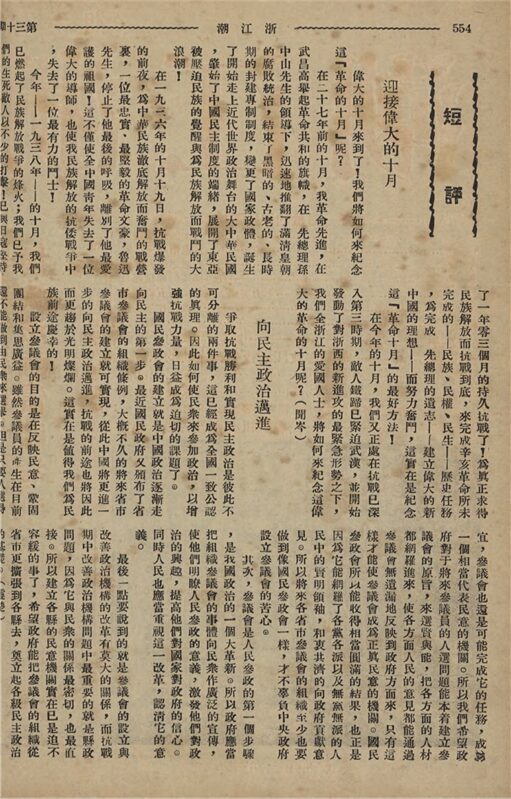 554
浙江潮
第三十
短評
迎接偉大的十月
偉大的十月來到了！我們將如何來紀念
這『革命的十月』呢？
在二十七年前的十月，我革命先進，在
武昌高舉起革命共和的旗幟，在 先總理孫
中山先生的領導下，迅速地推翻了滿清皇朝
的腐敗統治，結束了黑暗的、古老的、長時
期的封建專制制度，變更了國家政體，誕生
了開始走上近代世界政治舞台的大中華民國
，肇始了中國民主制度的端緒，展開了東亞
被壓迫民族的覺醒與爲民族解放而戰鬥的大
浪潮！
在一九三六年的十月十九日，抗戰爆發
的前夜，爲中華民族澈底解放而奮鬥的戰營
裏，一位最忠實、最堅毅的革命文豪，魯迅
先生，停止了他最後的呼吸，離別了他最愛
護的祖國！這不僅使全中國青年失去了一位
偉大的導師，也使我民族解放的抗倭戰爭中
，失去了一位最有力的鬥士！
今年——一九三八年——的十月，我們
已燃起了民族解放戰爭的烽火；我們已予我
們的生死敵人以不少的打擊！已與日寇堅持
了一年零三個月的持久抗戰了！爲眞正求得
民族解放而抗戰到底，來完成辛亥革命所未
完成的——民族、民權、民生——歷史任務
，爲完成 先總理的遺志——建立偉大的新
中國的理想——而努力奮鬥，這實在是紀念
這『革命的十月』的最好方法！
在今年的十月，我們又正處在抗戰已深
入第三時期，敵人鐵蹄已緊迫武漢，並開始
發動了對浙西的新進攻的最緊急形勢之下，
我們全浙江的愛國人士，將如何來紀念這偉
大的革命的十月呢？（開岑）
向民主政治邁進
爭取抗戰勝利和實現民主政治是彼此不
可分離的兩件事，這已經成爲全國一致公認
的眞理。因此如何使民衆來參加政治，以增
強抗戰力量，日益成爲迫切的課題了。
國民參政會的建立就是中國政治逐漸走
向民主的第一步。最近國民政府又頒布了省
市參議會的組織條例，大概不久的將來省市
參議會的建立就可實現，從此中國將更進一
步的向民主政治邁進，抗戰的前途也將因此
而更趨於光明燦爛。這實在是值得我們爲民
族前途慶幸的！
設立參議會的目的是在反映民意、鞏固
團結和集思廣益。雖然參議員的產生在目前
還不能做到由民衆來選舉。但是只要人選得
宜，參議會也還是可能完成它的任務，成爲
一個相當代表民意的機關。所以我們希望政
府對于將來參議員的人選問題能本着建立參
議會的原旨，來選賢與能，把各方面的人材
都網羅進來，使各方面人民的意見都能通過
參議會無遺漏地反映到政府方面來，只有這
樣才能使參議會成爲正眞民意的機關。國民
參政會所以能收得相當圓滿的結果，也正是
因爲它能網羅了各黨各派以及無黨無派的人
民中的賢明領袖，和衷共濟的向政府貢獻意
見。所以將來各省市參議會的組織至少也要
做到像國民參政會一樣，才不辜負中央政府
設立參議會的苦心。
其次，參議會是人民參政的第一個步驟
，是我國政治的一個大革新。所以政府應當
把組織參議會的事體向民衆作廣泛的宣傳，
使他們明瞭人民參政的意義，激發他們對政
治的興趣，提高他們對國家對政府的信心。
同時人民也應當重視這一改革，認清它的意
義。
最後一點要說到的就是參議會的設立與
改善政治機構的改革有莫大的關係，而抗戰
期中改善政治機構問題中最重要的就是縣政
問題，因爲它與民衆的關係最密切，也最直
接。所以建立各縣的民意機關實在已是迫不
容緩的事了，希望政府能把參議會的組織從
省市更擴張到各縣去，奠立起各級民主政治